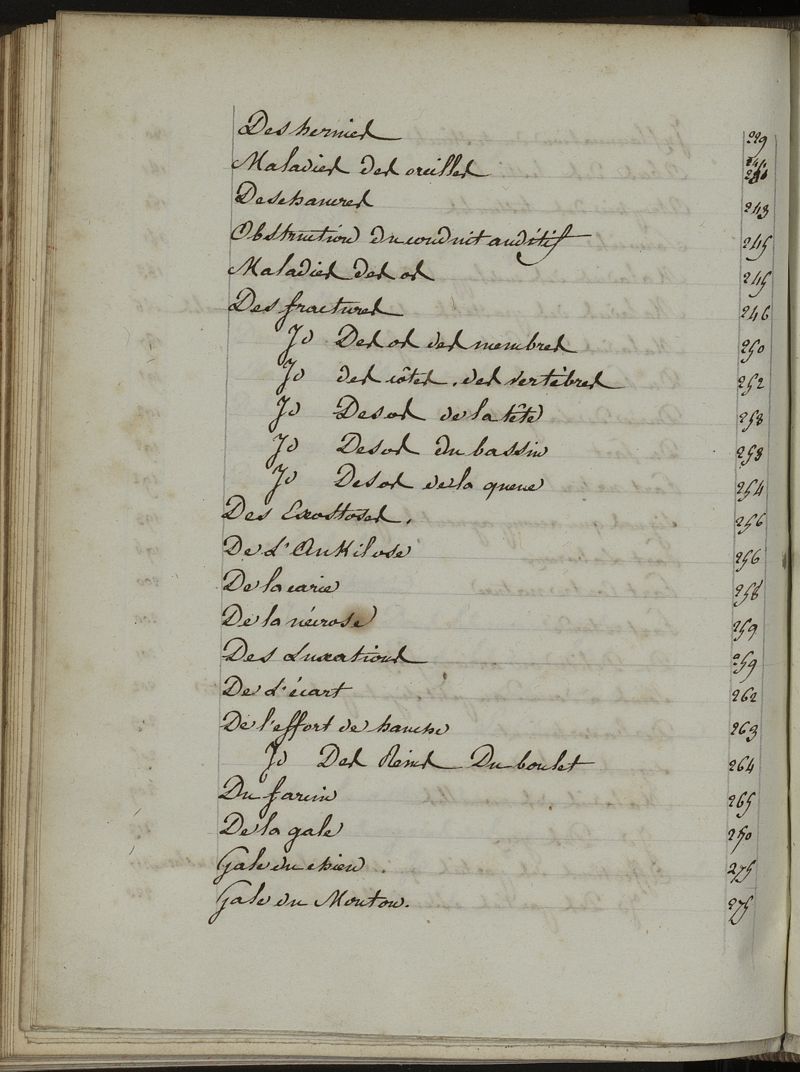 Des hernies 229
Maladies des oreilles 241
Des chancres 243
Obstruction du conduit auditif 245
Maladies des os 245
Des fractures 246
Jd Des os des membres 250
Jd des côtes. des vertèbres 252
Jd Des os de la tête 253
Jd Des os du bassin 253
Jd Des os de la queue 254
Des Exostoses. 256
De L'Ankilose 256
De la carie 258
De la nécrose 259
Des Luxations 259
De d'écart 262
De l'effort de hanche 263
Jd Des Reins Du boulet 264
Du farcin 265
De la gale 250
Gale du chien. 275
Gale du Mouton. 275